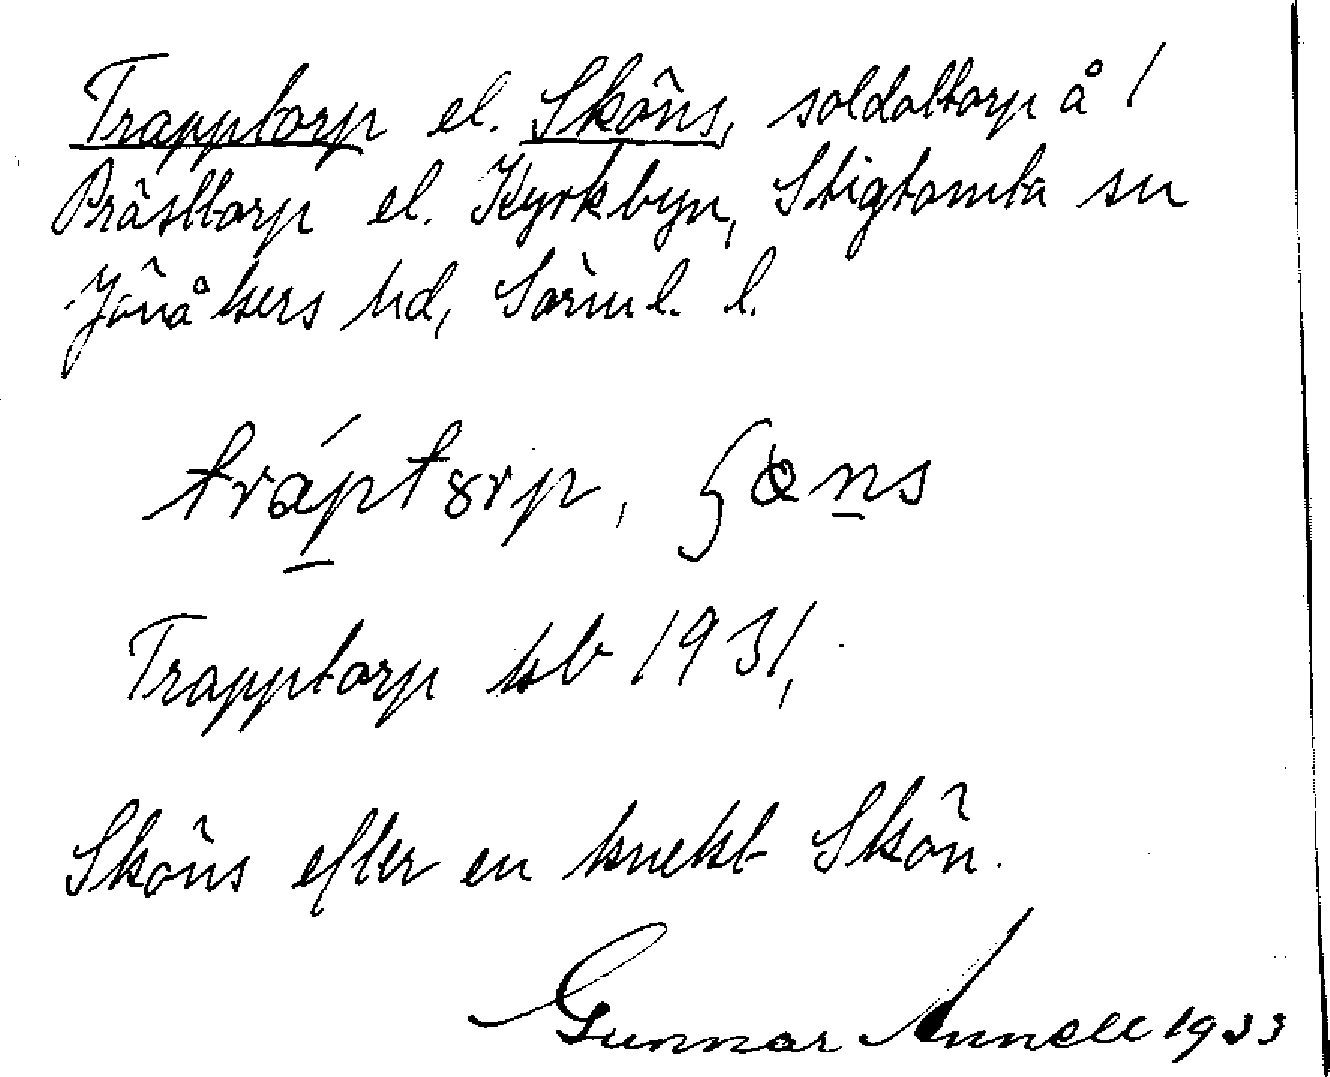 Trapptorp el. Sköns, soldattorp å /
Prästtorp el. Kyrkbyn, Stigtomta sn
Jönåkers hd, Sörml. l.
tráptorp, ʃöns
Trapptorp kb 1931,
Sköns efter en knekt Skön.
Gunnar Annell 1933